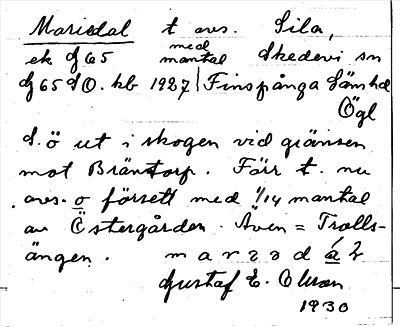 Mariedal t avs. Sila,
ek dj 65 med mantal Skedevi sn
dj 65 d Ö. kb 1927 Finspånga läns hd
Ögl
S.ö ut i skogen vid gränsen
mot Bränntorp. Förr t. nu
avs. o försett med 1/14 mantal
av Östergården. Även = Trolls-
ängen. marədá2
Gustaf E. Olsson
1930